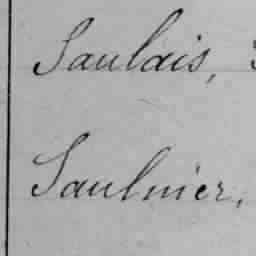 Saulais,
Saulnier,